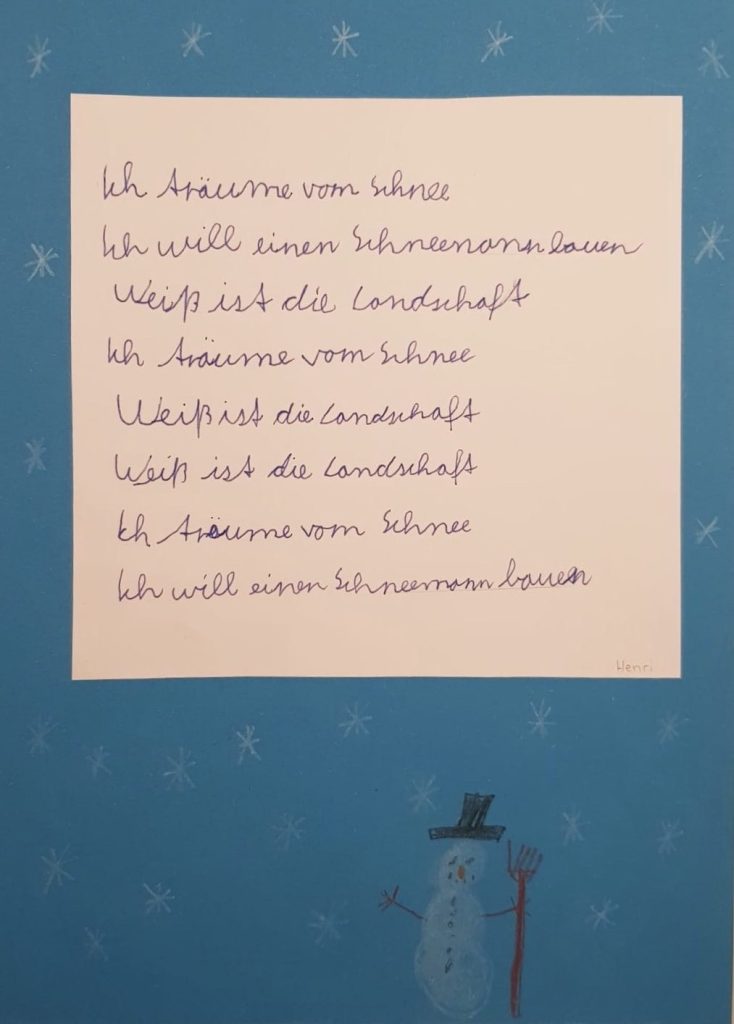 Ich träume vom Schnee
Ich will einen Schneemann bauen
Weiß ist die Landschaft
Ich träume vom Schnee
Weiß ist die Landschaft
Weiß ist die Landschaft
Ich träume vom Schnee
Ich will einen Schneemann bauen
Henri